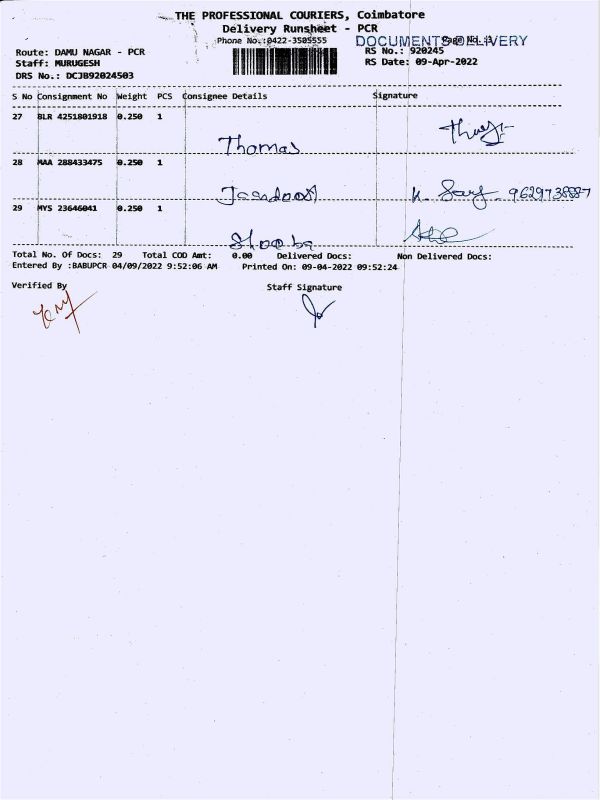 THE PROFESSIONAL COURIERS, Coimbatore
Delivery Runsheet - PCR
Phone No.:0422-3505555
DOCUMENTS DELIVERY
Route: DAMU NAGAR - PCR
RS No.: 920245
Staff: MURUGESH
RS Date: 09-Apr-2022
DRS No.: DCJB92024503
S No Consignment No Weight PCS Consignee Details Signature
27 BLR 4251801918 0.250 1
Thomas
28 MAA 288433475 0.250 1
29 MYS 23646041 0.250 1
Shooba
Total No. Of Docs: 29 Total COD Amt: 0.00 Delivered Docs: Non Delivered Docs:
Entered By :BABUPCR 04/09/2022 9:52:06 AM Printed On: 09-04-2022 09:52:24
Verified By Staff Signature